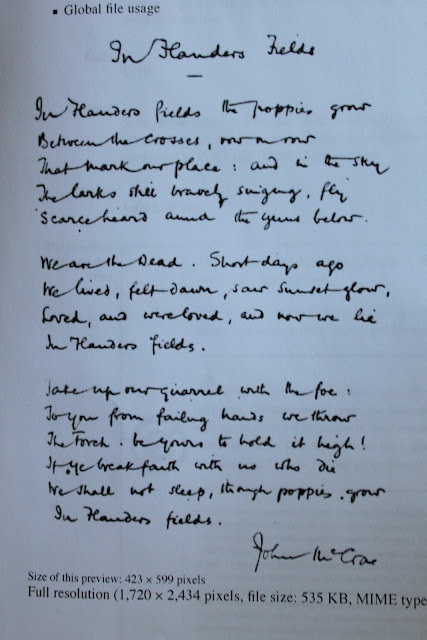 ▪ Global file usage
In Flanders Fields
In Flanders fields the poppies grow
Between the Crosses, row on row
That mark our place : and in the sky
The larks still bravely singing, fly
Scarce heard amid the guns below.
We are the Dead. Short days ago
We lived, felt dawn, saw sunset glow,
Loved, and were loved, and now we lie
In Flanders fields.
Take up our quarrel with the foe :
To you from failing hands we throw
The Torch. be yours to hold it high!
If ye break faith with us who die
We shall not sleep, though poppies grow
In Flanders fields.
John McCrae
Size of this preview: 423 × 599 pixels
Full resolution (1,720 × 2,434 pixels, file size: 535 KB, MIME type